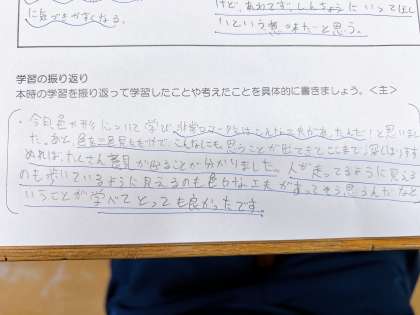 に気づきかなくなる。
けど、あわてず、しんちょうに いってほし
いという意味だと思う。
学習の振り返り
本時の学習を振り返って学習したことや考えたことを具体的に書きましょう。<主>
・今日、色や形について学び、非常口マークにはこんな工夫があったんだと思いまし
た。あと、色を二色見るだけで、こんなにも、思うことが出てきてここまで深くほりすす
めれば、たくさん意見が出ることが分かりました。人が走ってるように見える
のも歩いているように見えるのも色々な工夫があってそう思うんだなと
いうことが学べてとっても良かったです。